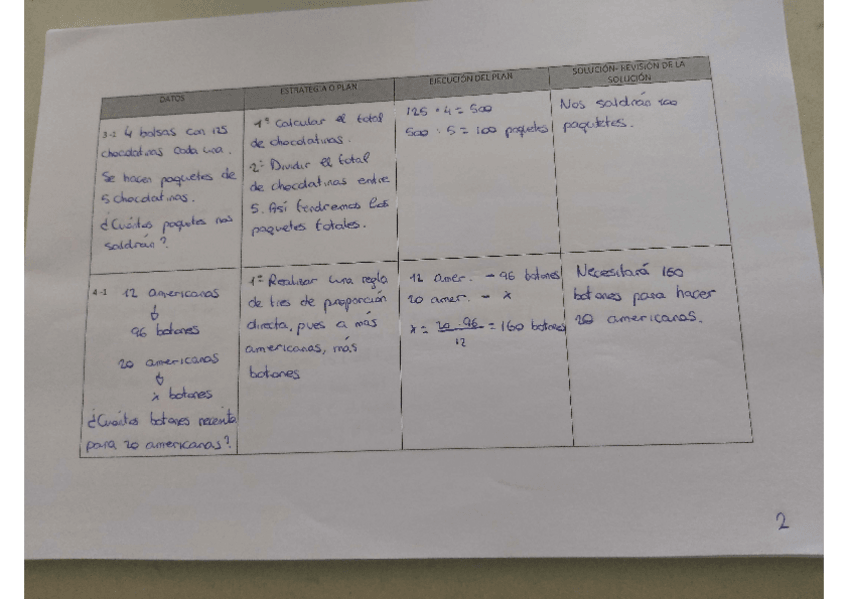 DATOS
ESTRATEGIA O PLAN
EJECUCIÓN DEL PLAN
SOLUCIÓN- REVISIÓN DE LA
SOLUCIÓN
3-2 4 bolsas con 125
chocolatinas cada una.
Se hacen paquetes de
5 chocolatinas.
¿Cuántos paquetes nos
saldrán?
1º Calcular el total
de chocolatinas.
2º Dividir el total
de chocolatinas entre
5. Así tendremos los
paquetes totales.
125 · 4 = 500
500 : 5 = 100 paquetes
Nos saldrán 100
paquetes.
4-1 12 americanas
↓
96 botones
20 americanas
↓
x botones
¿Cuántos botones necesita
para 20 americanas?
1º Realizar una regla
de tres de proporción
directa, pues a más
americanas, más
botones
12 amer. - 96 botones
20 amer. - x
x = 20 · 96 / 12 = 160 botones
Necesitará 160
botones para hacer
20 americanas.
2